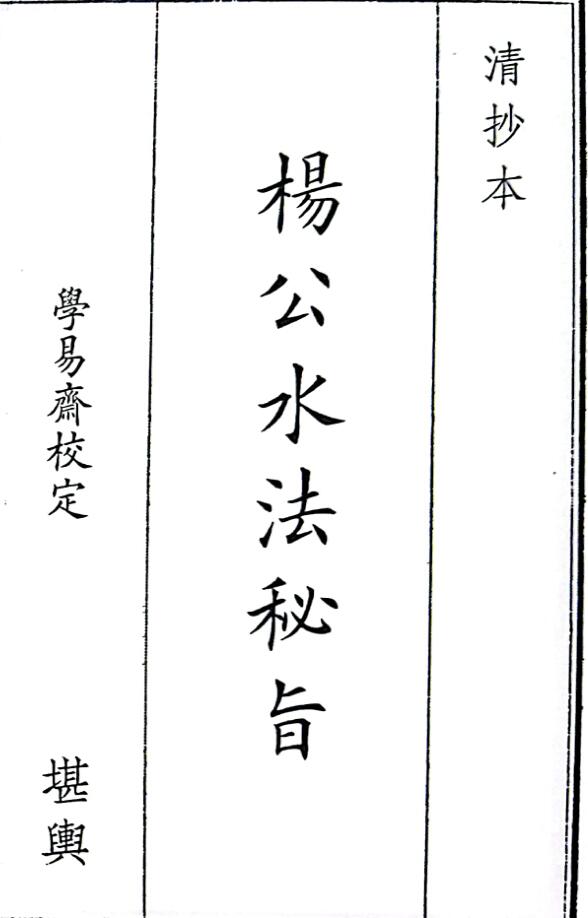 清抄本
楊公水法秘旨
學易齋校定
堪輿